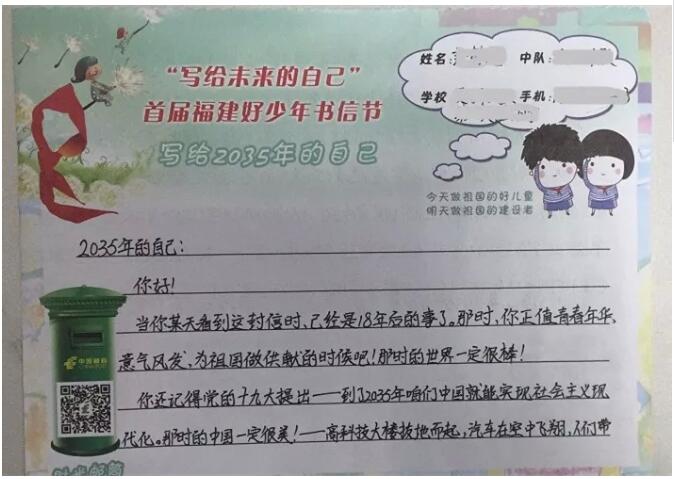 “写给未来的自己”
首届福建好少年书信节
写给2035年的自己
姓名: 中队:
学校: 手机:
今天做祖国的好儿童
明天做祖国的建设者
2035年的自己:
你好!
当你某天看到这封信时,已经是18年后的事了。那时,你正值青春年华、
意气风发,为祖国做供献的时候吧!那时的世界一定很棒!
你还记得党的十九大提出——到了2035年咱们中国就能实现社会主义现
代化。那时的中国一定很美!——高科技大楼拔地而起,汽车在空中飞翔,人们带
中国邮政
时光邮筒